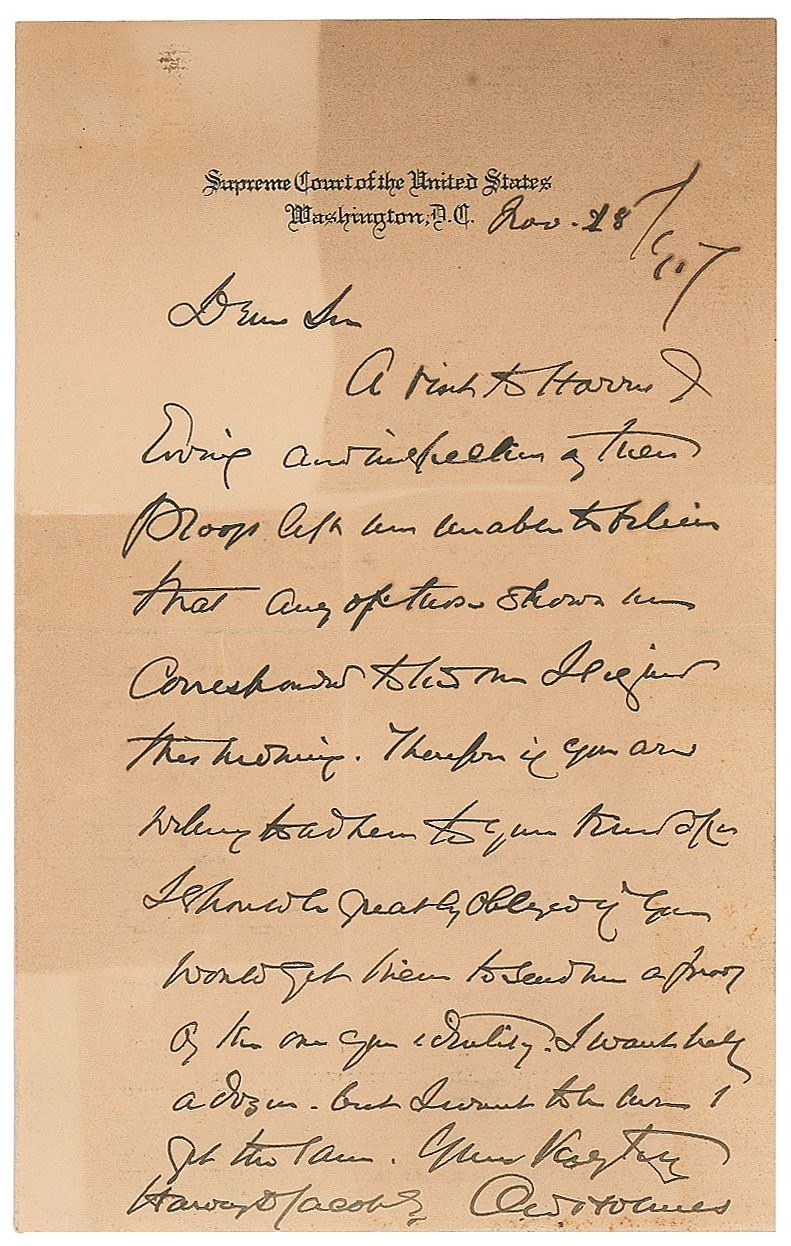 Supreme Court of the United States
Washington, D.C. Nov. 28/17
Dear Sir
A visit to Harris &
Ewing and inspection of their
proofs left me unable to believe
that any of those shown me
corresponded to the one I signed
this morning. Therefore if you are
willing to adhere to your kind offer
I should be greatly obliged if you
would get them to send me a proof
of the one you identify. I want half
a dozen - but I want to be sure I
get the same. Yours Very truly
Harvey D Jacob Esq O. W. Holmes